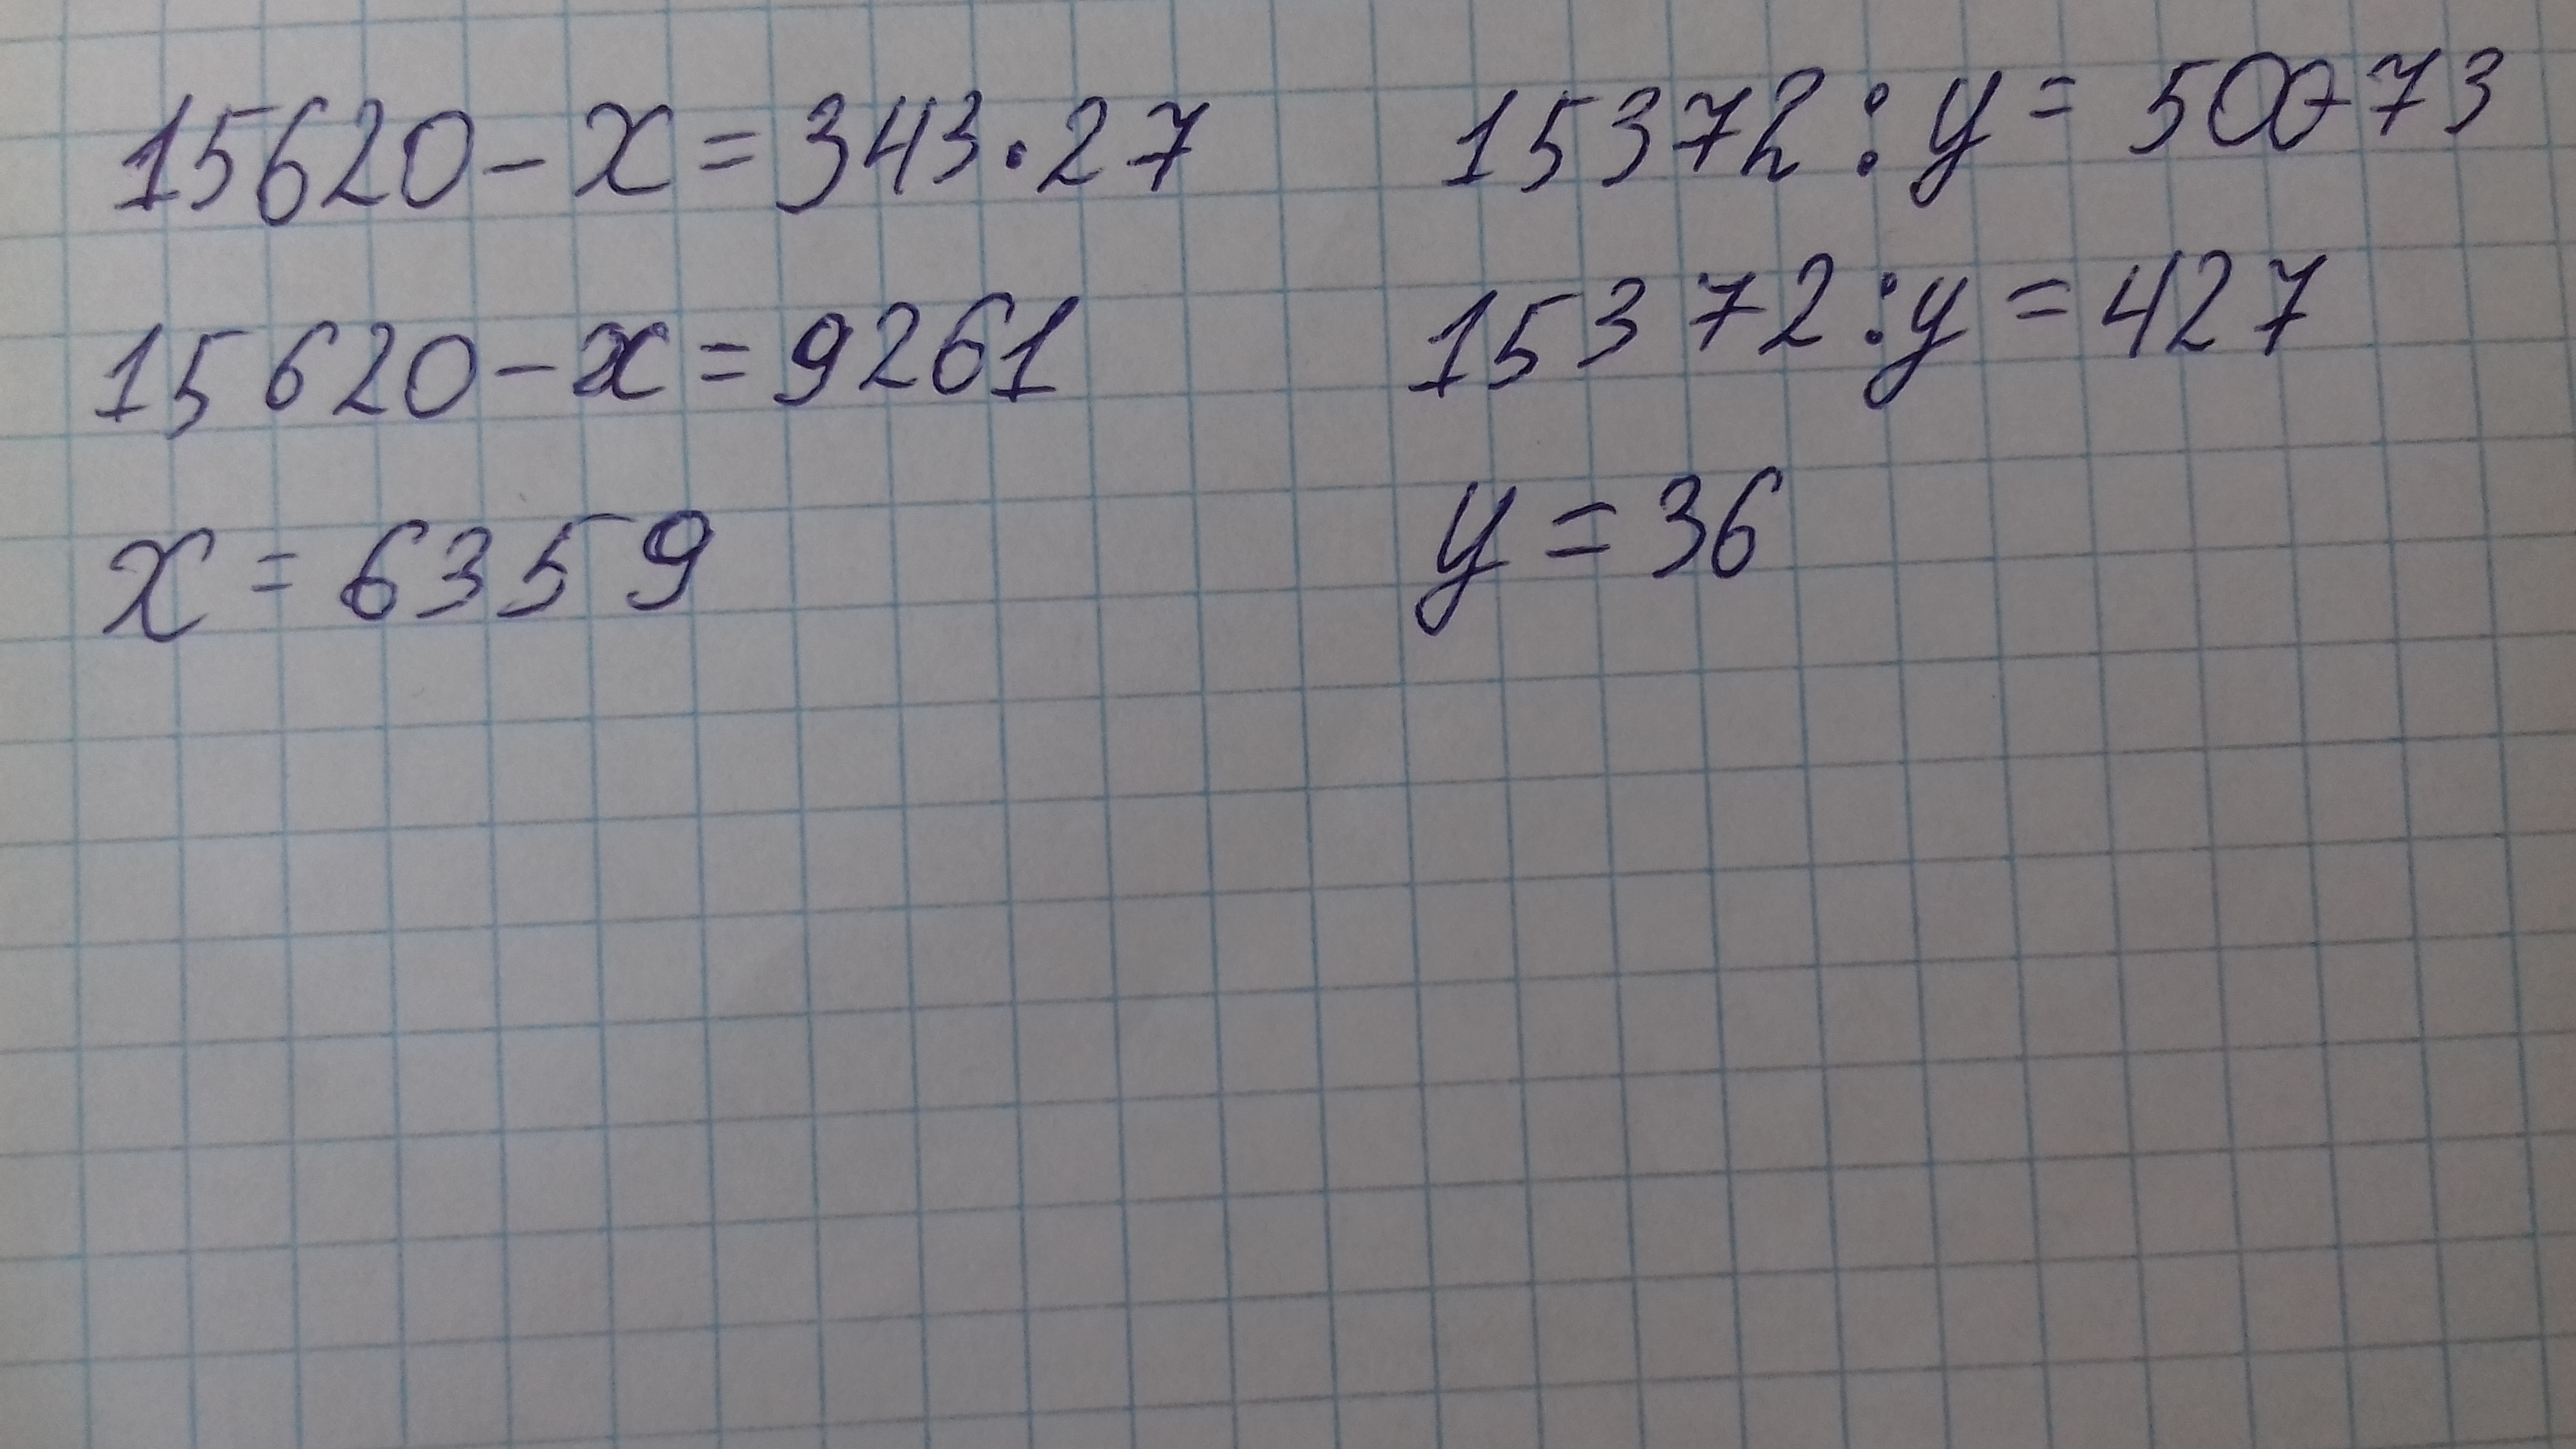 15620 - x = 343 · 27
15620 - x = 9261
x = 6359
15372 : y = 500-73
15372 : y = 427
y = 36